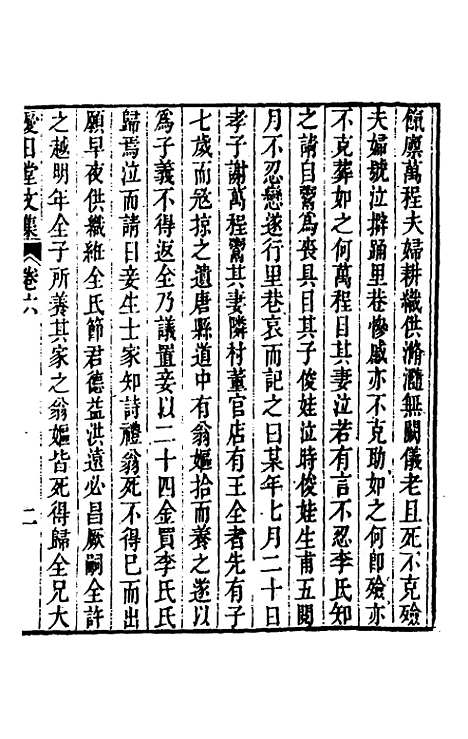 餼廩萬程夫婦耕織供滫瀡無闕儀老且死不克殮
夫婦號泣擗踊里巷慘慼亦不克助如之何卽殮亦
不克葬如之何萬程目其妻泣若有言不忍李氏知
之請自鬻爲喪具日其子俊娃泣時俊娃生甫五閱
月不忍戀遂行里巷哀而記之曰某年七月二十日
孝子謝萬程鬻其妻隣村董官店有王全者先有子
七歲而寇掠之遺唐縣道中有翁嫗拾而養之遂以
爲子義不得返全乃議置妾以二十四金買李氏氏
歸焉泣而請曰妾生士家知詩禮翁死不得已而出
願早夜供織維全氏節君德益洪遠必昌厥嗣全許
之越明年全子所養其家之翁嫗皆死得歸全兄大
愛日堂文集 卷六 二